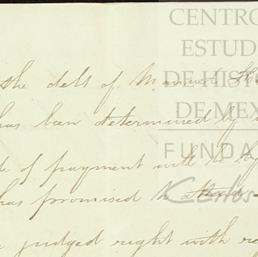 CENTRO
ESTUD
DE HISTO
DE MEX
FUNDA
Carlos
the debt of
has been determined by
of payment with
has promised to
judged right with re